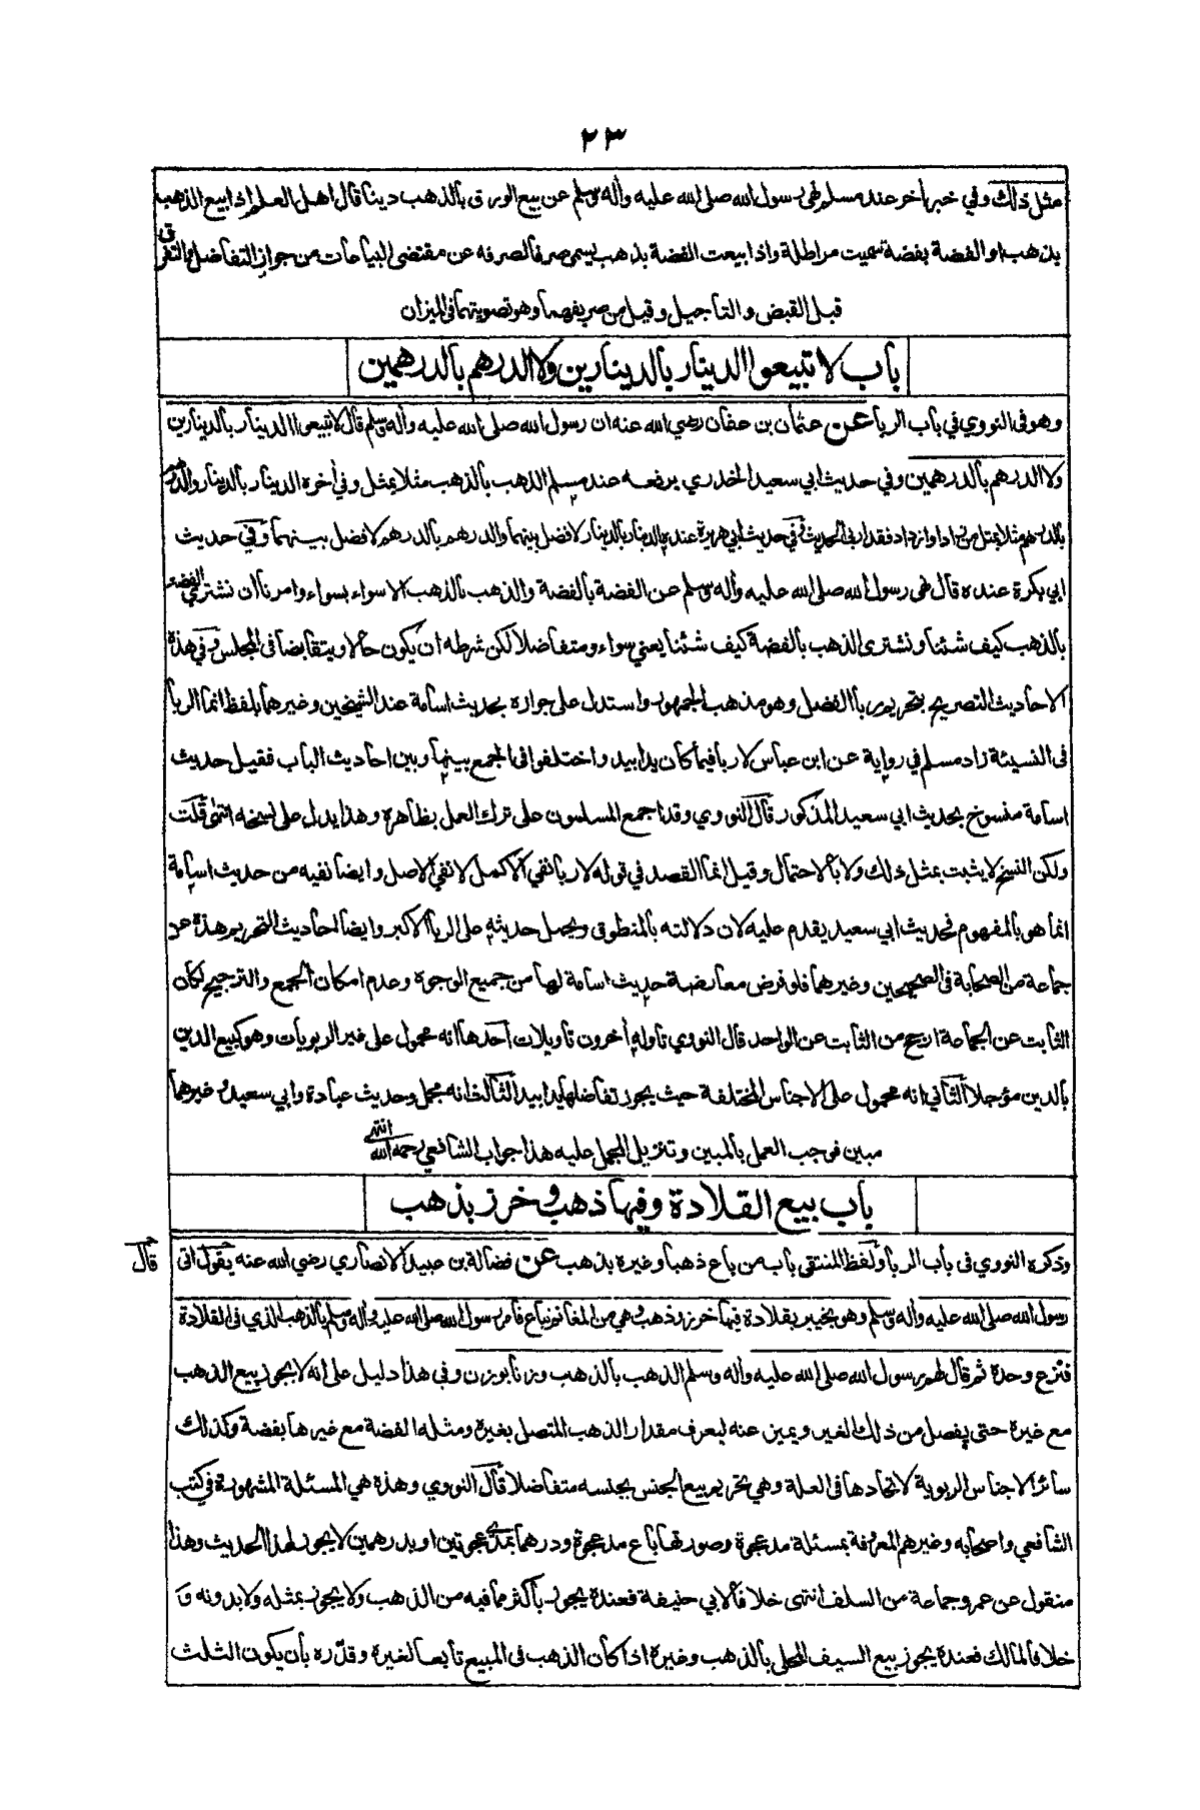 ٢٣
مثل ذلك وفي خبر أخر عند مسلم نهى رسول الله صلى الله عليه وأله وسلم عن بيع الورق بالذهب دينا قال اهل العلم اذا بيع الذهب
بذهب او الفضة بفضة سميت مراطلة واذا بيعت الفضة بذهب يسمى صرفا لصرفه عن مقتضى البياعات من جواز التفاضل والتفرق
قبل القبض والتأجيل وقيل من صريفهما وهو تصويتهما في الميزان
باب لا تبيعوا الدينار بالدينارين ولا الدرهم بالدرهمين
وهو فى النووي في باب الربا عن عثمان بن عفان رضي الله عنه ان رسول الله صلى الله عليه وأله وسلم قال لا تبيعوا الدينار بالدينارين
ولا الدرهم بالدرهمين وفي حديث ابي سعيد الخدري يرفعه عند مسلم الذهب بالذهب مثلا بمثل وفي أخره الدينار بالدينار والدرهم
بالدرهم مثلا بمثل من زاد او ازداد فقد اربى الحديث وفي حديث ابي هريرة عنده الدينار بالدينار لا فضل بينهما والدرهم بالدرهم لا فضل بينهما وفي حديث
ابي بكرة عنده قال نهى رسول الله صلى الله عليه وأله وسلم عن الفضة بالفضة والذهب بالذهب الا سواء بسواء وامرنا ان نشتري الفضة
بالذهب كيف شئنا ونشترى الذهب بالفضة كيف شئنا يعني سواء ومتفاضلا لكن شرطه ان يكون حالا ويتقابضا فى المجلس وفي هذه
الاحاديث التصريح بتحريم ربا الفضل وهو مذهب الجمهور واستدل على جوازه بحديث اسامة عند الشيخين وغيرهما بلفظ انما الربا
فى النسيئة زاد مسلم في رواية عن ابن عباس لا ربا فيما كان يدا بيد واختلفوا فى الجمع بينهما وبين احاديث الباب فقيل حديث
اسامة منسوخ بحديث ابي سعيد المذكور قال النووي وقد اجمع المسلمون على ترك العمل بظاهره وهذا يدل على نسخه انتهى قلت
ولكن النسخ لا يثبت بمثل ذلك ولا بالاحتمال وقيل انما القصد في قوله لا ربا نفي الاكمل لا نفي الاصل وايضا نفيه من حديث اسامة
انما هو بالمفهوم فحديث ابي سعيد يقدم عليه لان دلالته بالمنطوق ويحمل حديثه على الربا الاكبر وايضا احاديث التحريم هذه عن
جماعة من الصحابة فى الصحيحين وغيرهما فلو فرض معارضة حديث اسامة لها من جميع الوجوه وعدم امكان الجمع والترجيح لكان
الثابت عن الجماعة ارجح من الثابت عن الواحد قال النووي تأوله أخرون تأويلات أحدها انه محمول على غير الربويات وهو كبيع الدين
بالدين مؤجلا الثاني انه محمول على الاجناس المختلفة حيث يجوز تفاضلها يدا بيد الثالث انه مجمل وحديث عبادة وابي سعيد وغيرهما
مبين فوجب العمل بالمبين وتنزيل المجمل عليه هذا جواب الشافعي رحمه الله انتهى
باب بيع القلادة وفيها ذهب وخرز بذهب
وذكره النووي فى باب الربا ولفظ المنتقى باب من باع ذهبا وغيره بذهب عن فضالة بن عبيد الانصاري رضي الله عنه يقول اتى
قال
رسول الله صلى الله عليه وأله وسلم وهو بخيبر بقلادة فيها خرز وذهب وهي من المغانم تباع فأمر رسول الله صلى الله عليه وأله وسلم بالذهب الذي فى القلادة
فنزع وحده ثم قال لهم رسول الله صلى الله عليه وأله وسلم الذهب بالذهب وزنا بوزن وفي هذا دليل على انه لا يجوز بيع الذهب
مع غيره حتى يفصل من ذلك الغير ويميز عنه ليعرف مقدار الذهب المتصل بغيره ومثله الفضة مع غيرها بفضة وكذلك
سائر الاجناس الربوية لاتحادها فى العلة وهي تحريم بيع الجنس بجنسه متفاضلا قال النووي وهذه هي المسئلة المشهورة في كتب
الشافعي واصحابه وغيرهم المعروفة بمسئلة مد عجوة وصورتها باع مد عجوة ودرهما بمدي عجوتين او بدرهمين لا يجوز لهذا الحديث وهذا
منقول عن عمر وجماعة من السلف انتهى خلافا لابي حنيفة فعنده يجوز بأكثر مما فيه من الذهب ولا يجوز بمثله ولا بدونه و
خلافا لمالك فعنده يجوز بيع السيف المحلى بالذهب وغيره اذا كان الذهب فى المبيع تابعا لغيره وقدّره بأن يكون الثلث